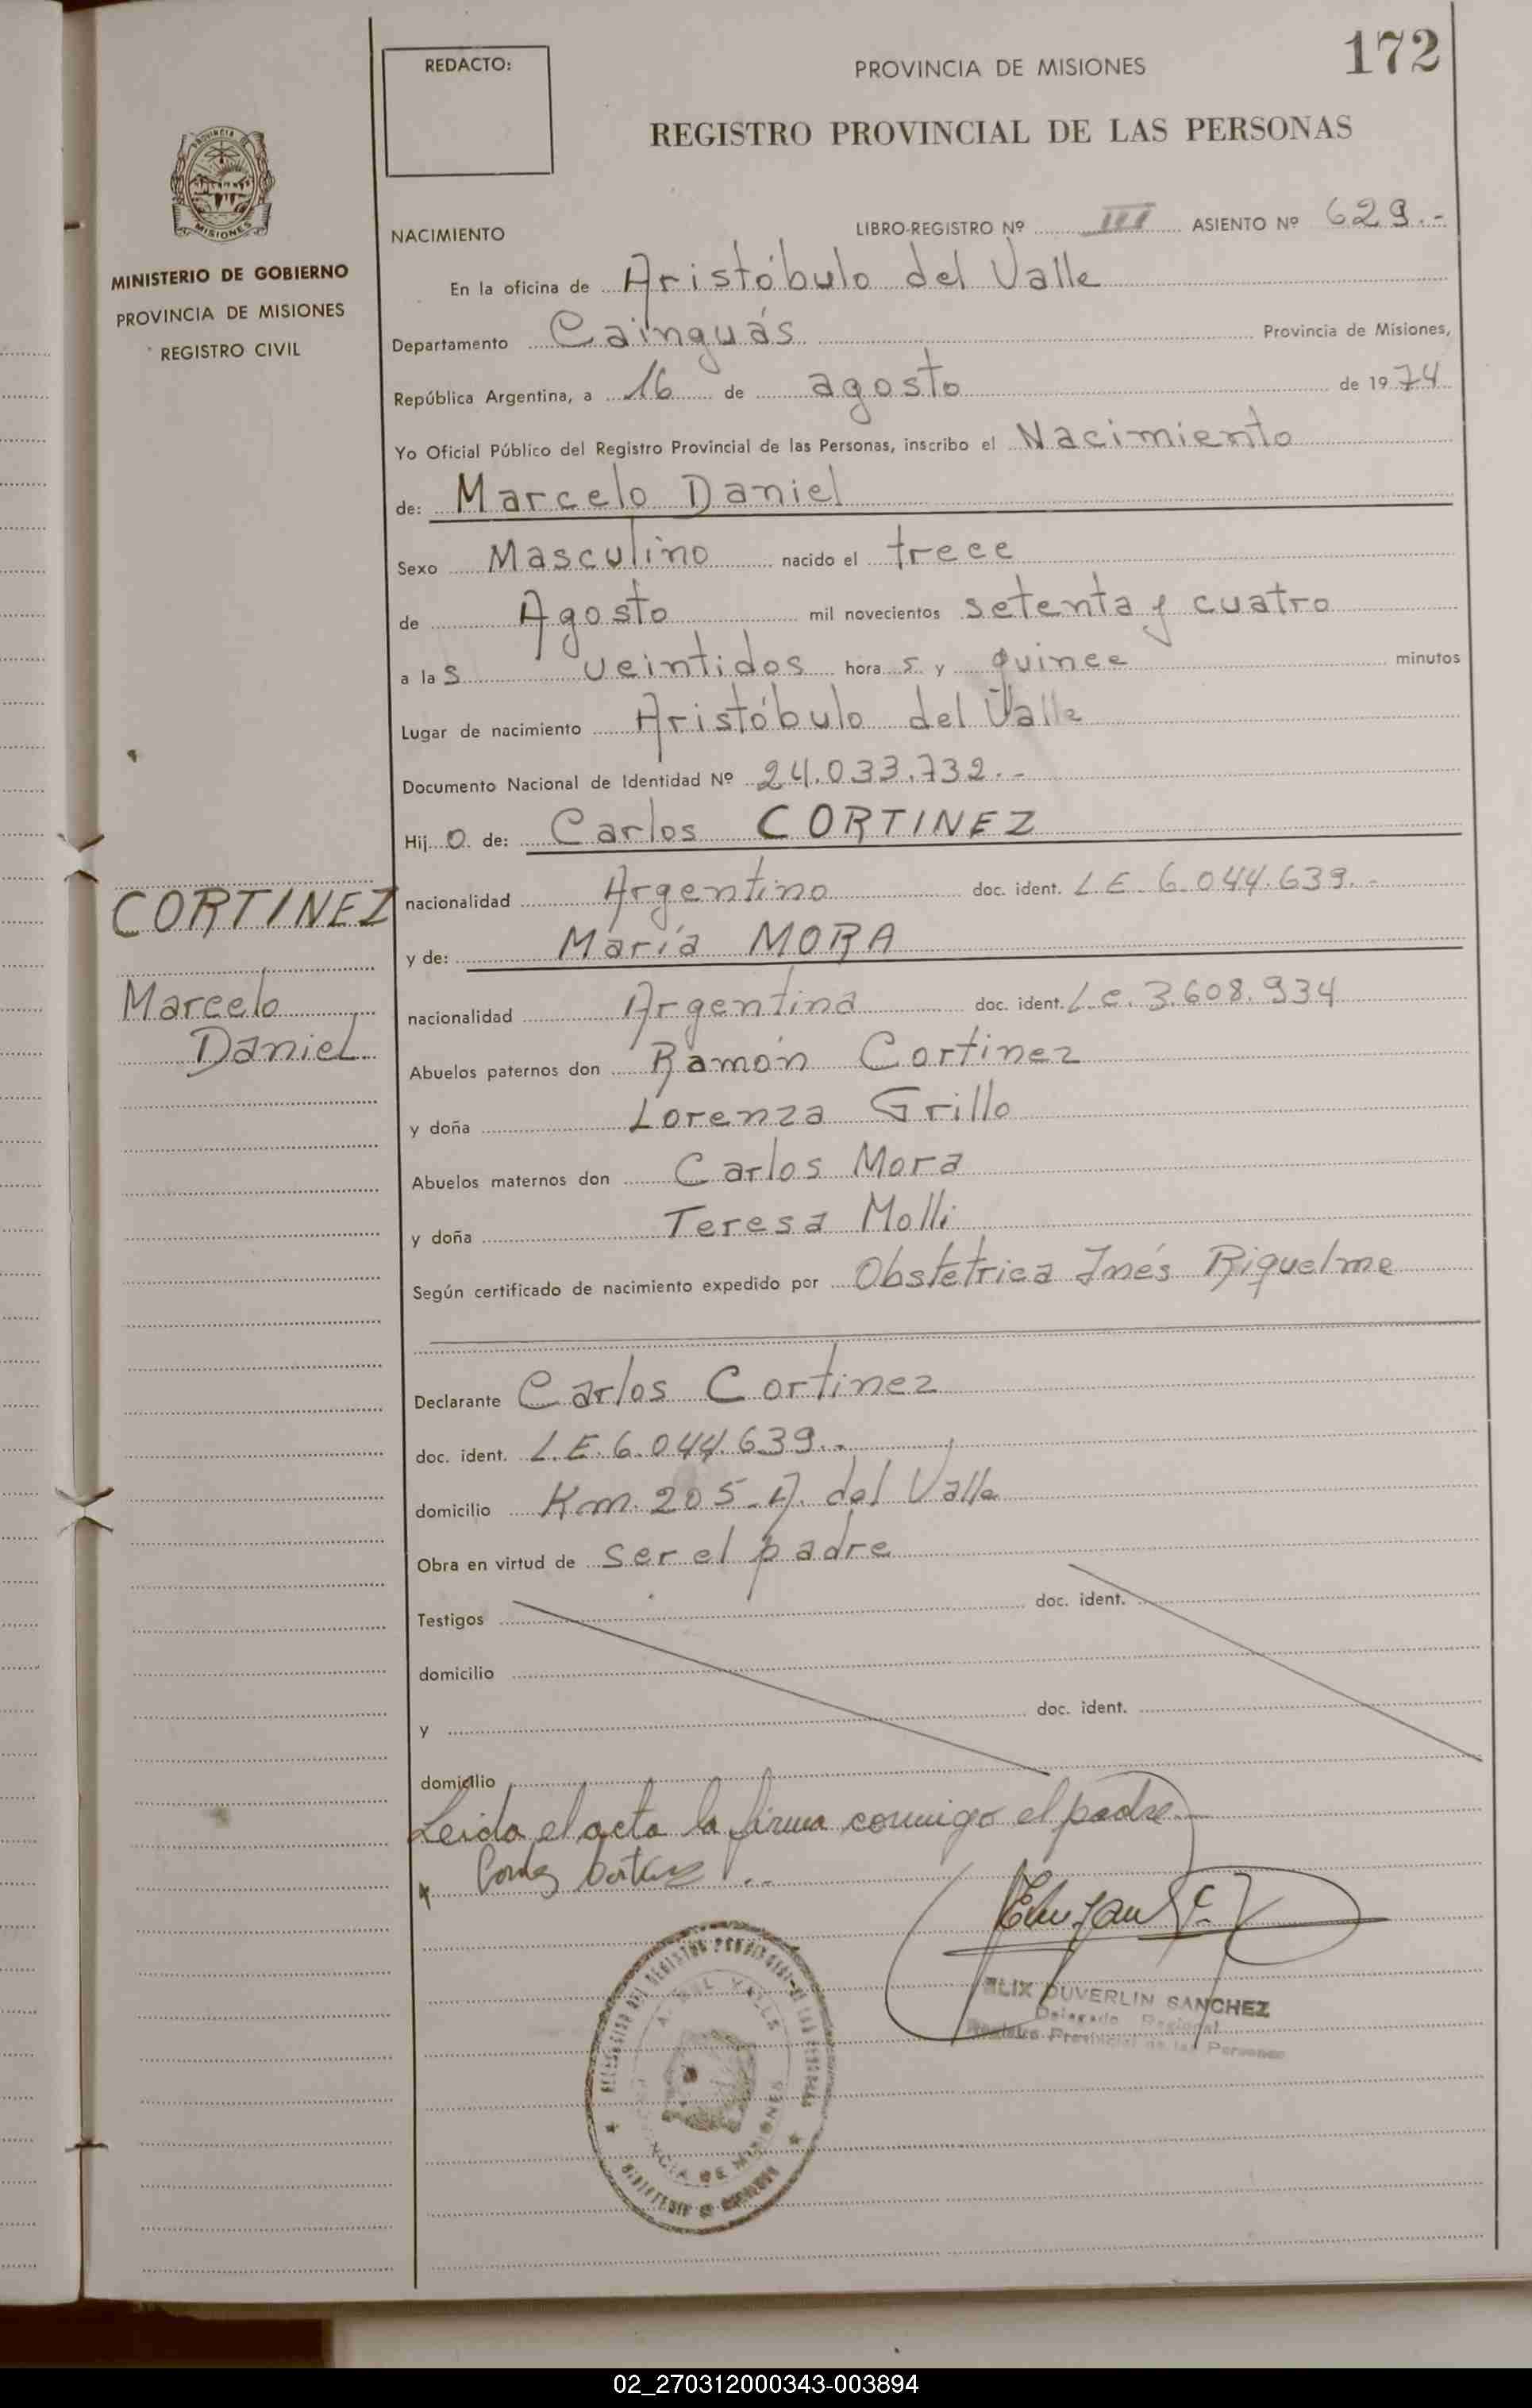 172
REDACTO:
PROVINCIA DE MISIONES
REGISTRO PROVINCIAL DE LAS PERSONAS
PROVINCIA
MISIONES
MINISTERIO DE GOBIERNO
PROVINCIA DE MISIONES
REGISTRO CIVIL
NACIMIENTO LIBRO-REGISTRO Nº III ASIENTO Nº 629.-
En la oficina de Aristóbulo del Valle
Departamento Cainguás Provincia de Misiones,
República Argentina, a 16 de agosto de 1974
Yo Oficial Público del Registro Provincial de las Personas, inscribo el Nacimiento
de: Marcelo Daniel
Sexo Masculino nacido el trece
de Agosto mil novecientos setenta y cuatro
a las veintidos horas y quince minutos
Lugar de nacimiento Aristóbulo del Valle
Documento Nacional de Identidad Nº 24.033.732.-
Hijo de: Carlos CORTINEZ
CORTINEZ
nacionalidad Argentino doc. ident. L.E. 6.044.639.-
y de: María MORA
Marcelo
Daniel
nacionalidad Argentina doc. ident. L.C. 3.608.934
Abuelos paternos don Ramón Cortinez
y doña Lorenza Grillo
Abuelos maternos don Carlos Mora
y doña Teresa Molli
Según certificado de nacimiento expedido por Obstetrica Inés Riquelme
Declarante Carlos Cortinez
doc. ident. L.E. 6.044.639.-
domicilio Km. 205-A. del Valle
Obra en virtud de ser el padre
Testigos doc. ident.
domicilio
y doc. ident.
domicilio
Leida el acta la firma conmigo el padre
ELIX DUVERLIN SANCHEZ
Delegado Regional
Registro Provincial de las Personas
A. DEL VALLE
MISIONES
02_270312000343-003894